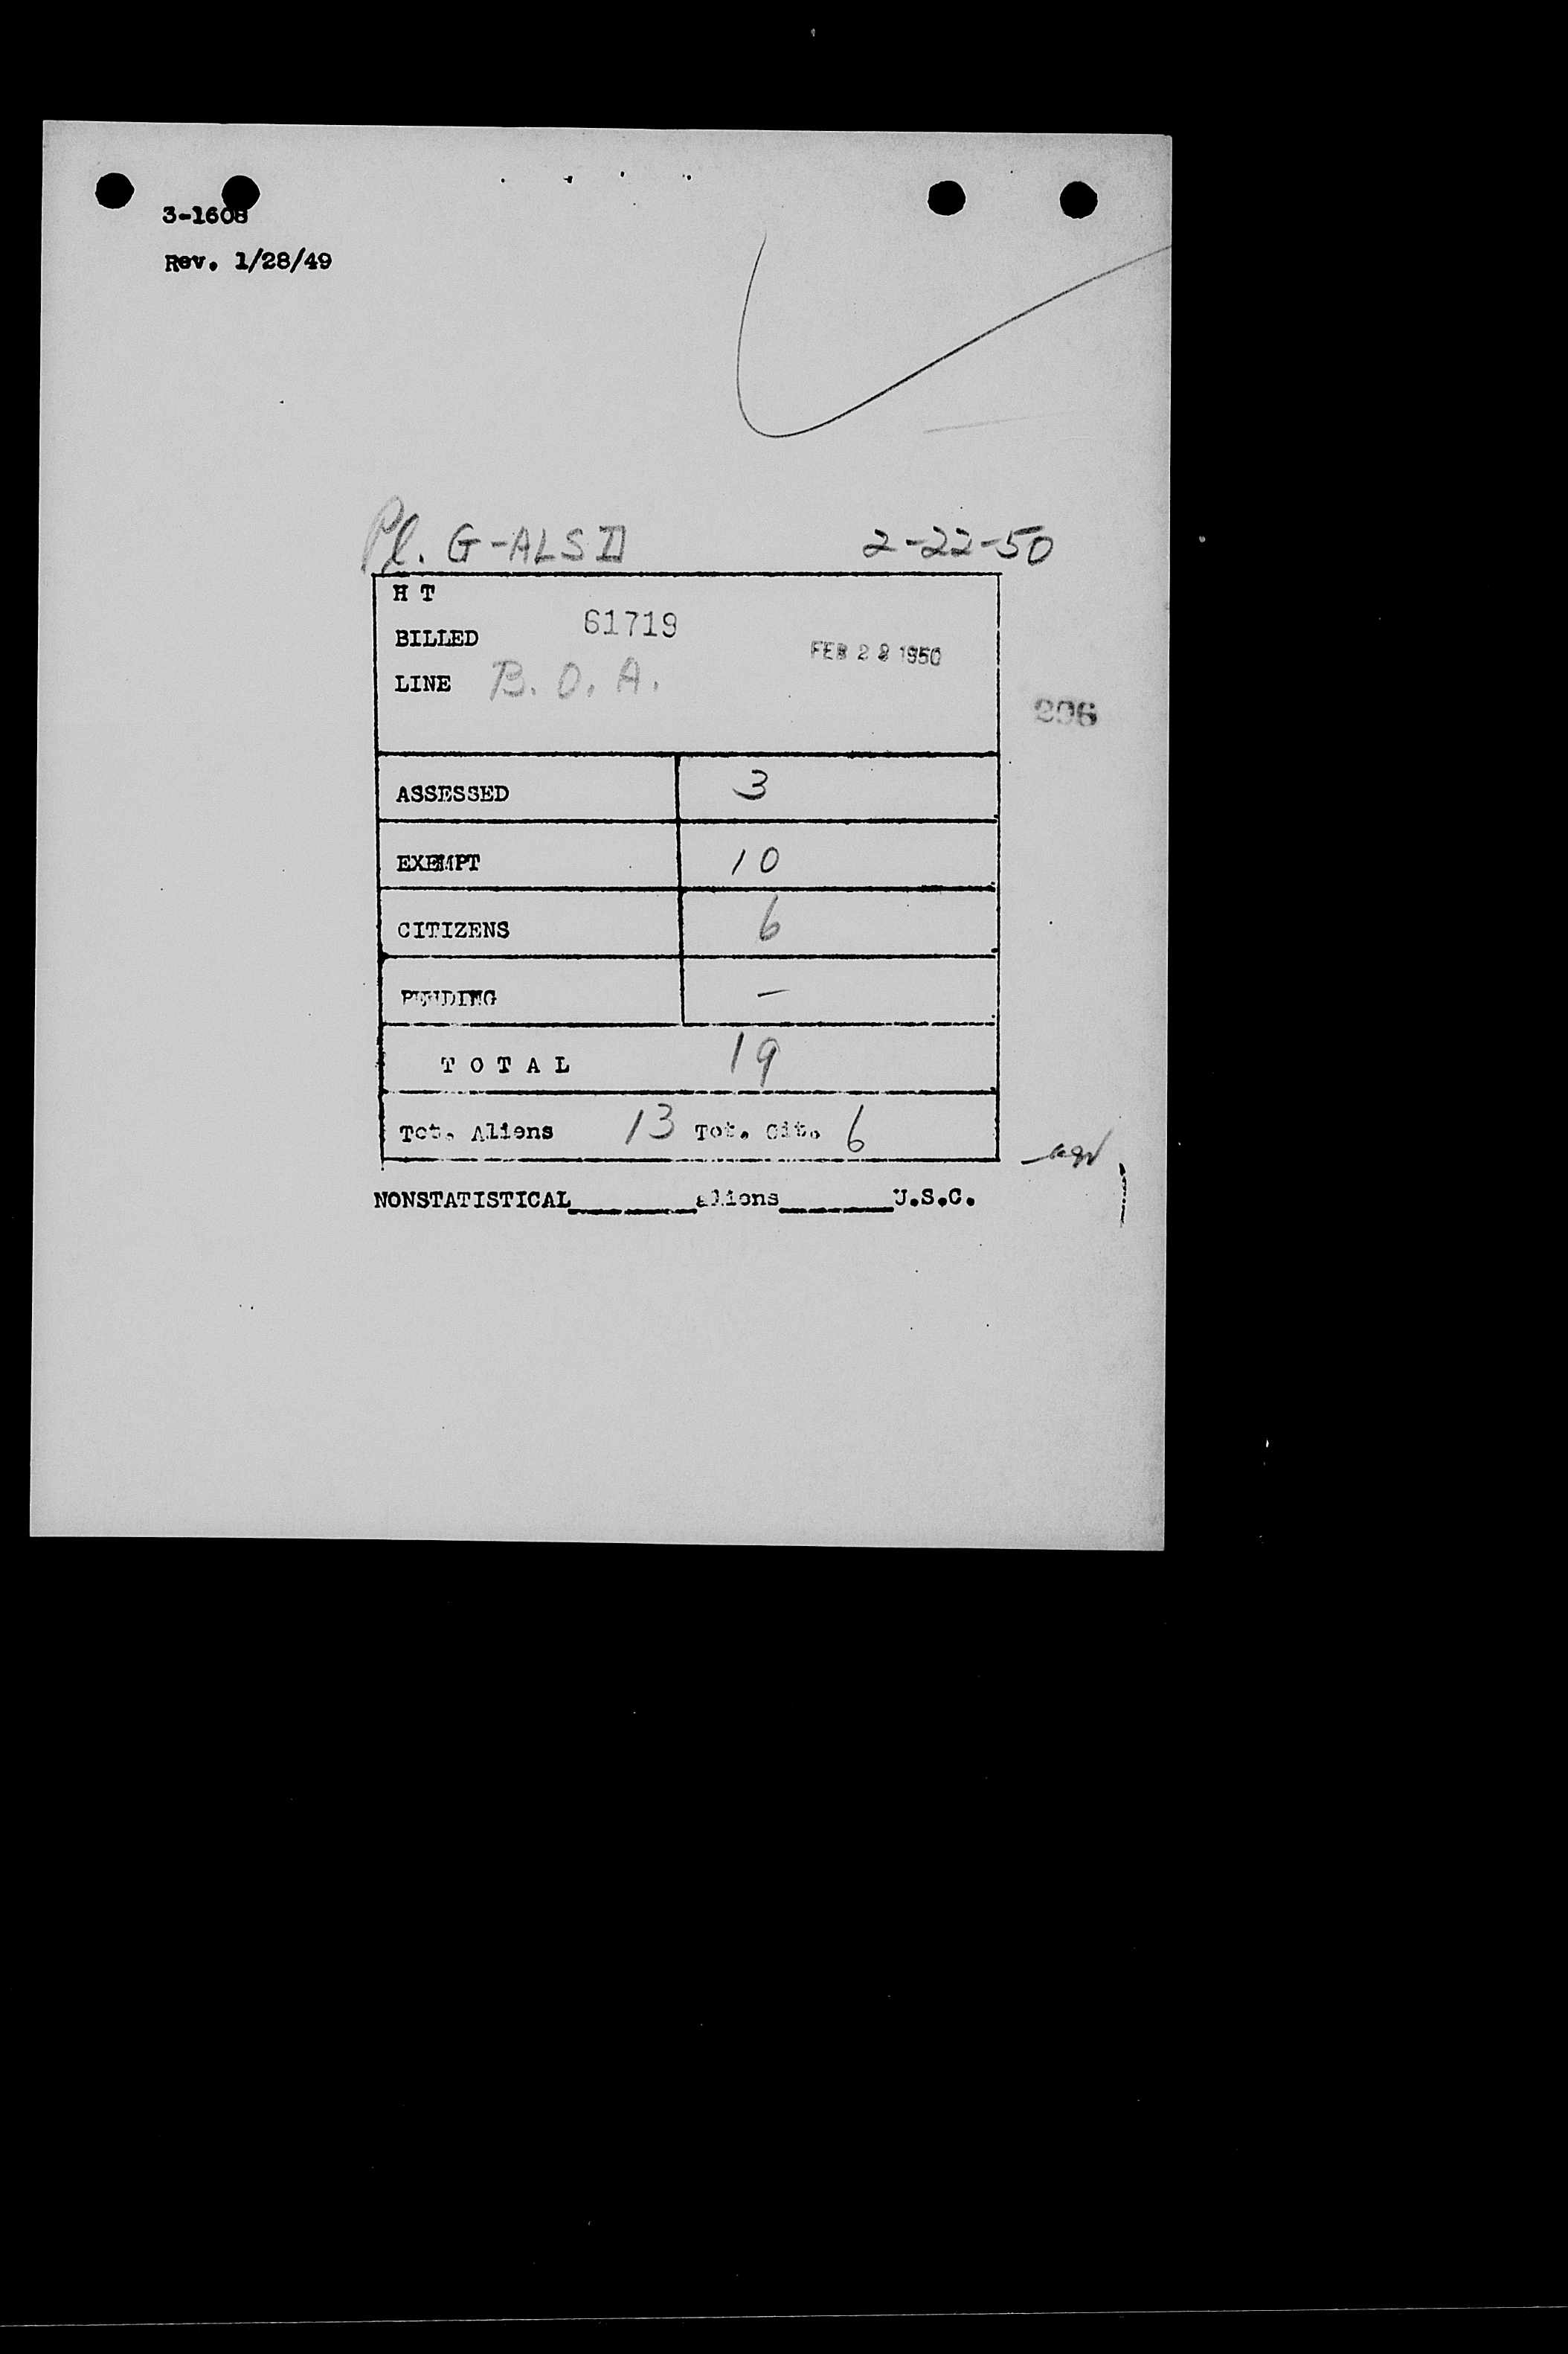 3-1608
Rev. 1/28/49
Pl. G-ALSD 2-22-50
H T
BILLED 61719
FEB 28 1950
LINE B. O. A.
296
ASSESSED 3
EXEMPT 10
CITIZENS 6
PENDING –
T O T A L 19
Tot. Aliens 13 Tot. Cit. 6
NONSTATISTICAL________aliens________U.S.C.